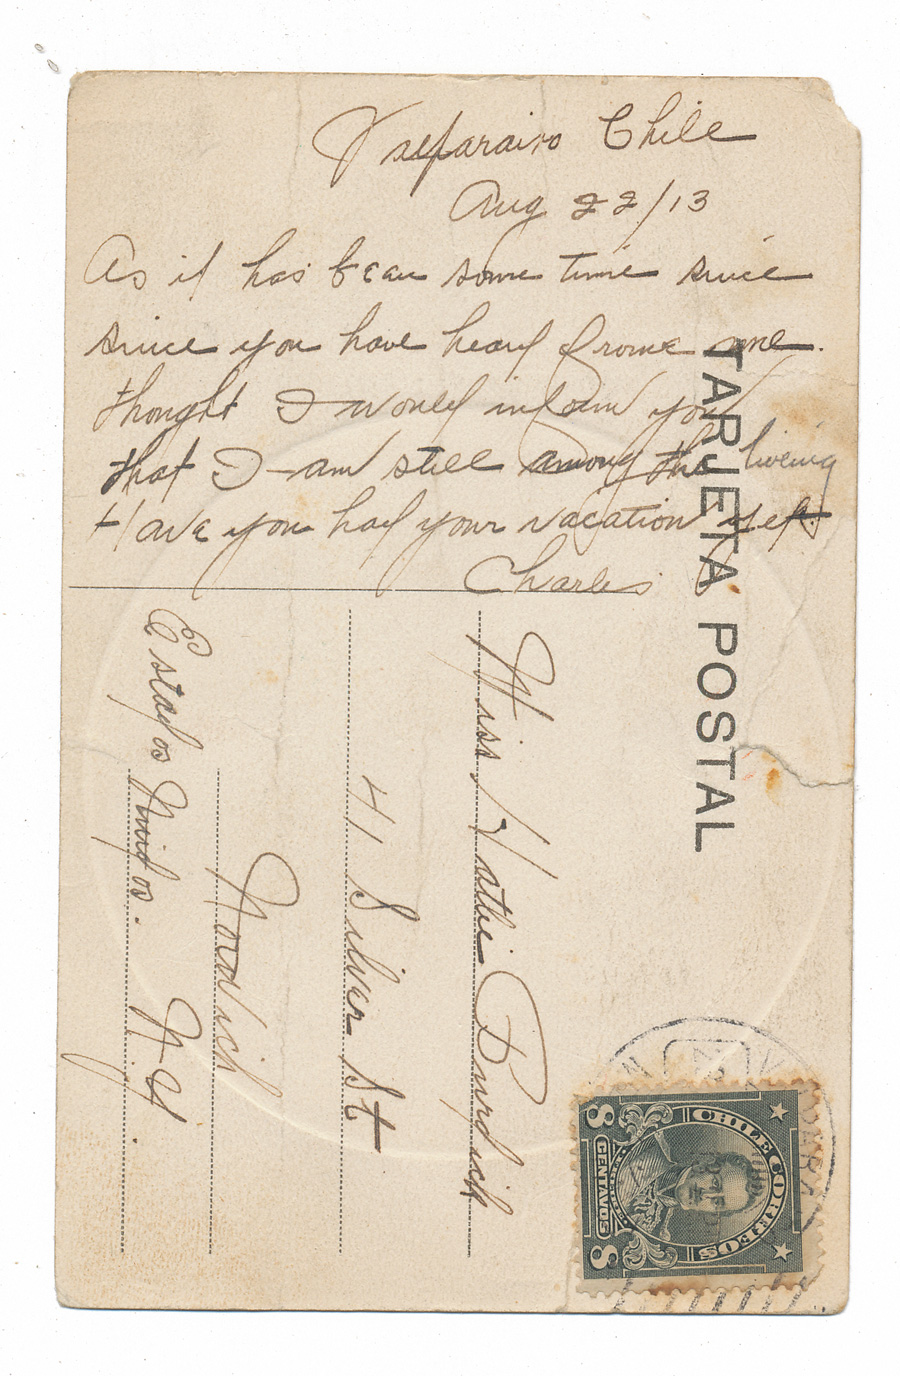 Valparaiso Chile
Aug 22/13
As it has bean some time since
since you have heard frome me.
thought I would inform you
that I am still among the liveing
Have you had your vacation yet
Charles
TARJETA POSTAL
Miss Hattie Burdick
41 Silver St
Norwich
N.Y.
Estados Unidos.
CHILE CORREOS
8 CENTAVOS 8